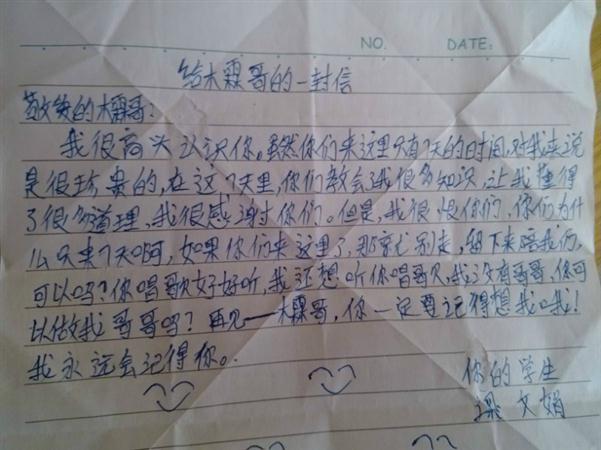 NO. DATE:
给木霖哥的一封信
敬爱的木霖哥:
我很高兴认识你。虽然你们来这里只有7天的时间,对我来说
是很珍贵的,在这7天里,你们教会了我很多知识,让我懂得
了很多道理,我很感谢你们。但是,我很恨你们,你们为什
么只来7天啊,如果你们来这里了,那就别走,留下来陪我们,
可以吗?你唱歌好好听,我还想听你唱歌,我没有哥哥,你可
以做我哥哥吗?再见——木霖哥,你一定要记得想我哦!
我永远会记得你。
你的学生
文娟